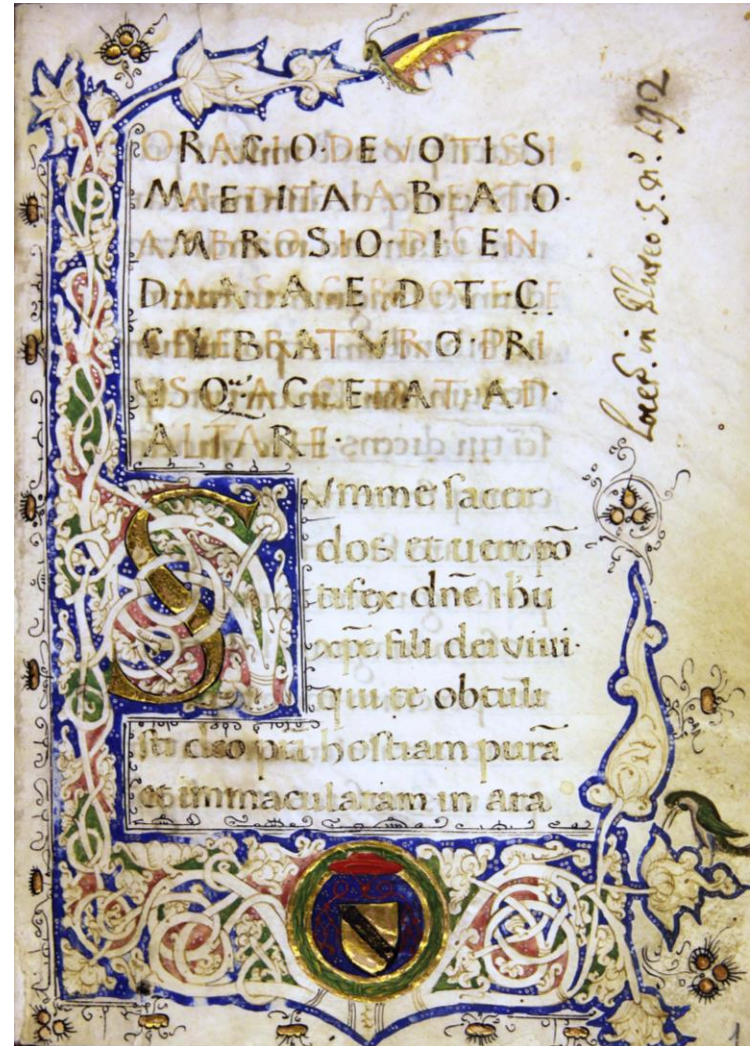 ORACIO·DEVOTISSI
MA EDITA A BEATO·
AMBROSIO·DICEN
DA A SACERDOTE
CELEBRATVRO·PRI
VSQ ACCEDAT AD·
ALTARE·
SVmme sacer
dos et uere põ
tifex dn̄e ihū
xp̄e fili dei viui·
qui te obtuli
sti deo pr̄i hostiam purā
et immaculatam in ara
in Pluteo 5. N°. 492
1